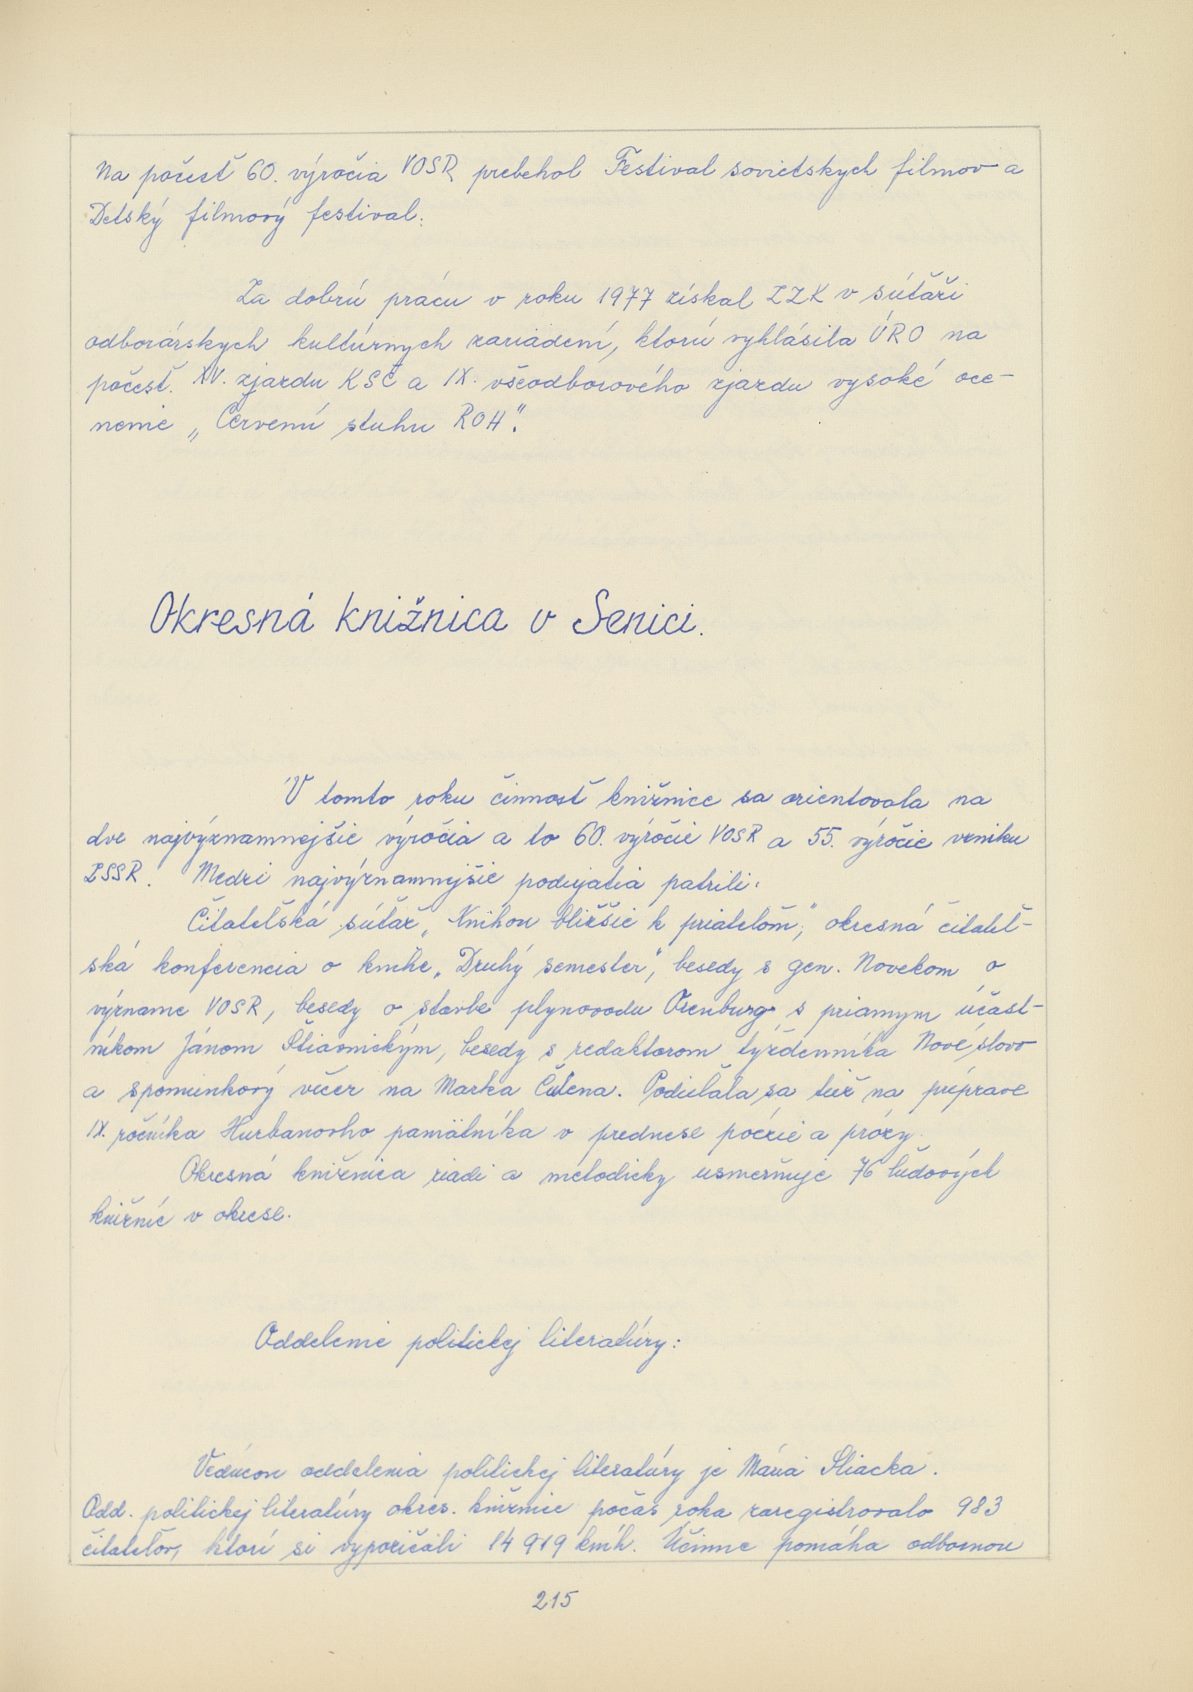 Na počesť 60. výročia VOSR prebehol Festival sovietskych filmov a
Detský filmový festival.
Za dobrú prácu v roku 1977 získal ZZK v súťaži
odborárskych kultúrnych zariadení, ktorú vyhlásila ÚRO na
počesť XV. zjazdu KSČ a IX. všeodborového zjazdu vysoké oce-
nenie „Červenú stuhu ROH".
Okresná knižnica v Senici.
V tomto roku činnosť knižnice sa orientovala na
dve najvýznamnejšie výročia a to 60. výročie VOSR a 55. výročie vzniku
ZSSR. Medzi najvýznamnejšie podujatia patrili:
Čitateľská súťaž „Knihou bližšie k priateľom", okresná čitateľ-
ská konferencia o knihe „Druhý semester", besedy s gen. Novekom o
význame VOSR, besedy o stavbe plynovodu Orenburg s priamym účast-
níkom Jánom Štiavnickým, besedy s redaktorom týždenníka Nové slovo
a spomienkový večer na Marka Čulena. Podieľala sa tiež na príprave
IX. ročníka Hurbanovho pamätníka v prednese poézie a prózy.
Okresná knižnica riadi a metodicky usmerňuje 76 ľudových
knižníc v okrese.
Oddelenie politickej literatúry:
Vedúcou oddelenia politickej literatúry je Mária Sliacka.
Odd. politickej literatúry okres. knižnice počas roka zaregistrovalo 983
čitateľov, ktorí si vypožičali 14 919 kníh. Účinne pomáha odbornou
215